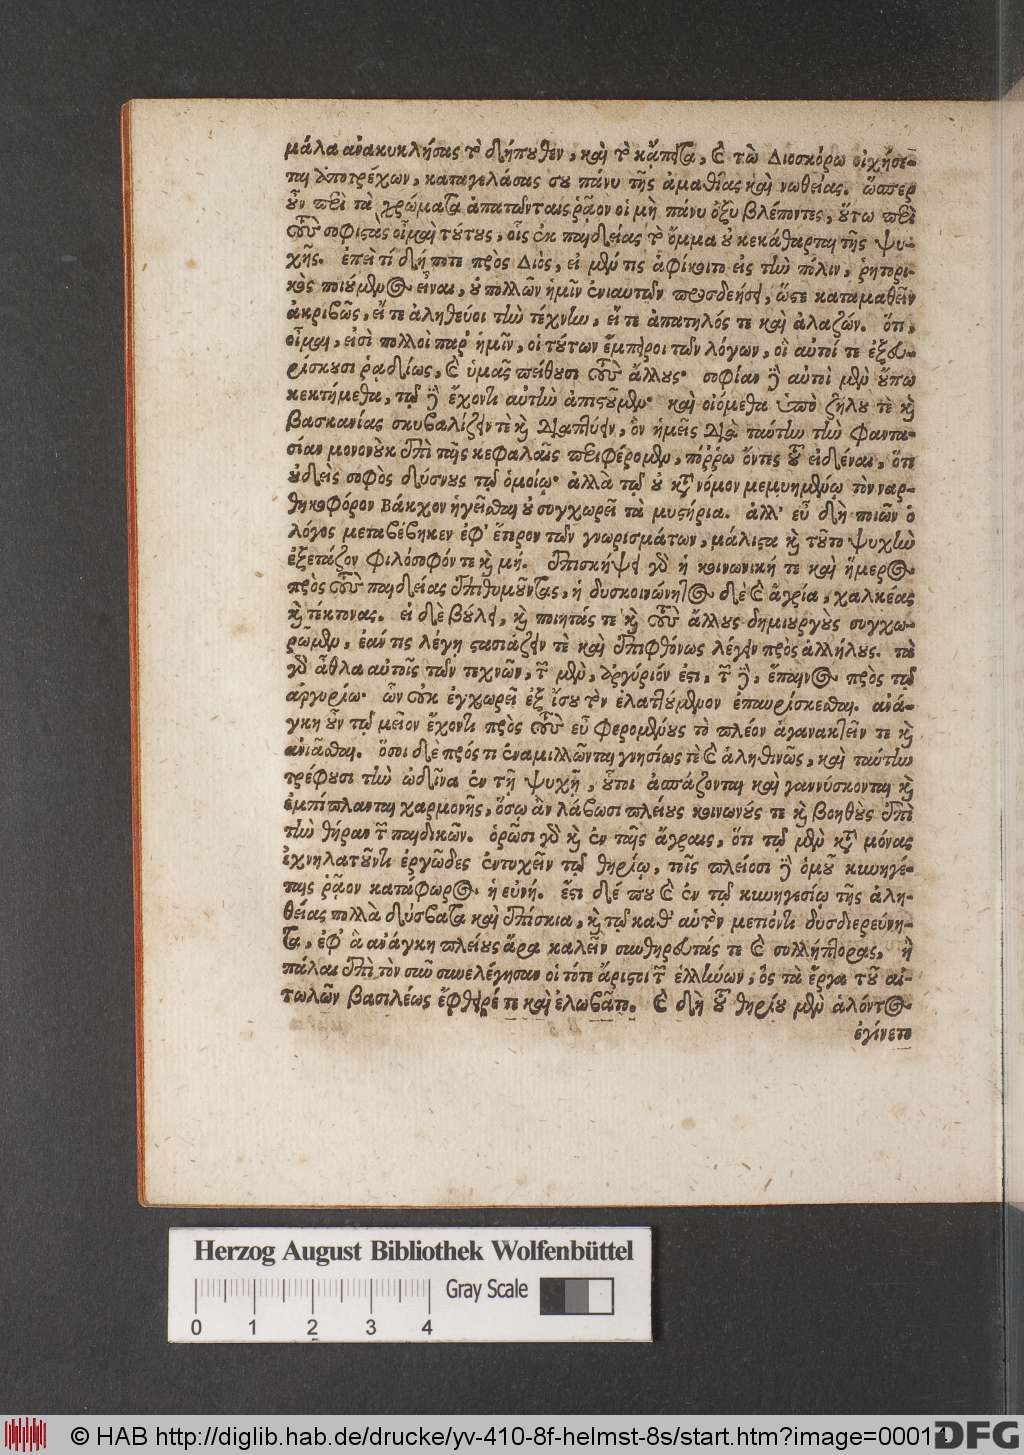 μάλα ἀνακυκλήσας τὸ δήπουθεν, καὶ τὸ κἄπειτα, καὶ τὼ Διοσκόρω οἰχήσε-
ται ἀποτρέχων, καταγελάσας σου πάνυ τῆς ἀμαθίας καὶ νωθείας. ὥσπερ
οὖν περὶ τὰ χρώματα ἀπατῶνται ῥᾷον οἱ μὴ πάνυ ὀξὺ βλέποντες, οὕτω περὶ
τοὺς σοφιστὰς οἶμαι τούτους, οἷς ἐκ παιδείας τὸ ὄμμα οὐ κεκάθαρται τῆς ψυ-
χῆς. ἐπεὶ τί δή ποτε πρὸς Διὸς, εἰ μέν τις ἀφίκοιτο εἰς τὴν πόλιν, ῥητορι-
κὸς ποιούμενος εἶναι, οὐ πολλῶν ἡμῖν ἐνιαυτῶν προσδεήσει, ὥστε καταμαθεῖν
ἀκριβῶς, εἴ τε ἀληθεύοι τὴν τέχνην, εἴ τε ἀπατηλός τε καὶ ἀλαζών. ὅτι,
οἶμαι, εἰσὶ πολλοὶ παρ' ἡμῖν, οἱ τούτων ἔμπειροι τῶν λόγων, οἳ αὐτοί τε ἐξευ-
ρίσκουσι ῥᾳδίως, καὶ ὑμᾶς πείθουσι τοὺς ἄλλους· σοφίαν δὲ αὐτοὶ μὲν οὔπω
κεκτήμεθα, τῷ δὲ ἔχοντι αὐτὴν ἀπιστοῦμεν· καὶ οἰόμεθα ὑπὸ ζήλου τὲ καὶ
βασκανίας σκυβαλίζειν τὲ καὶ διαπτύειν, ὃν ἡμεῖς διὰ ταύτην τὴν φαντα-
σίαν μονονοὺκ ἐπὶ ταῖς κεφαλαῖς περιφέρομεν, πόῤῥω ὄντες τοῦ εἰδέναι, ὅτι
οὐδεὶς σοφὸς δύσνους τῷ ὁμοίῳ· ἀλλὰ τῷ οὐ κατὰ νόμον μεμυημένῳ τὸν ναρ-
θηκοφόρον Βάκχον ἡγεῖσθαι οὐ συγχωρεῖ τὰ μυστήρια. ἀλλ' εὖ δὴ ποιῶν ὁ
λόγος μεταβέβηκεν ἐφ' ἕτερον τῶν γνωρισμάτων, μάλιστα καὶ τοῦτο ψυχὴν
ἐξετάζον φιλόσοφόν τε καὶ μή. ἐπισκήψει γὰρ ἡ κοινωνική τε καὶ ἥμερος
πρὸς τοὺς παιδείας ἐπιθυμοῦντας, ἡ δυσκοινώνητος δὲ καὶ ἀγρία, χαλκέας
καὶ τέκτονας. εἰ δὲ βούλει, καὶ ποιητάς τε καὶ τοὺς ἄλλους δημιουργοὺς συγχω-
ρῶμεν, ἐάν τις λέγῃ στασιάζειν τὲ καὶ ἐπιφθόνως λέγειν πρὸς ἀλλήλους. τὰ
γὰρ ἆθλα αὐτοῖς τῶν τεχνῶν, τῶν μὲν, ἀργύριόν ἐστι, τῶν δὲ, ἔπαινος πρὸς τῷ
ἀργυρίῳ· ὧν οὐκ ἐγχωρεῖ ἐξ ἴσου τὸν ἐλαττούμενον ἐπαυρίσκεσθαι. ἀνά-
γκη οὖν τῷ μεῖον ἔχοντι πρὸς τοὺς εὖ φερομένους τὸ πλέον ἀγανακτεῖν τε καὶ
ἀνιᾶσθαι. ὅσοι δὲ πρός τι ἐναμιλλῶνται γνησίως τὲ καὶ ἀληθινῶς, καὶ ταύτην
τρέφουσι τὴν ὠδῖνα ἐν τῇ ψυχῇ, οὗτοι ἀσπάζονται καὶ γαννύσκονται καὶ
ἐμπίπλανται χαρμονῆς, ὅσῳ ἂν λάβωσι πλείους κοινωνούς τε καὶ βοηθοὺς ἐπὶ
τὴν θήραν τῶν παιδικῶν. ὁρῶσι γὰρ καὶ ἐν ταῖς ἄγραις, ὅτι τῷ μὲν κατὰ μόνας
ἰχνηλατοῦντι ἐργῶδες ἐντυχεῖν τῷ θηρίῳ, τοῖς πλείοσι δὲ ὁμοῦ κυνηγέ-
ταις ῥᾷον κατάφωρος ἡ εὐνή. ἔστι δέ που καὶ ἐν τῷ κυνηγεσίῳ τῆς ἀλη-
θείας πολλὰ δύσβατα καὶ ἐπίσκια, καὶ τῷ καθ' αὑτὸν μετιόντι δυσδιερεύνη-
τα, ἐφ' ἃ ἀνάγκη πλείους ἄρα καλεῖν συνθηρευτάς τε καὶ συλλήπτορας, ἢ
πάλαι ἐπὶ τὸν σῦν συνελέγησαν οἱ τότε ἄριστοι τῶν ἑλλήνων, ὃς τὰ ἔργα τοῦ αἰ-
τωλῶν βασιλέως ἔφθειρέ τε καὶ ἐλωβᾶτο. καὶ δὴ τοῦ θηρίου μὲν ἁλόντος
ἐγίνετο
Herzog August Bibliothek Wolfenbüttel
Gray Scale
0 1 2 3 4
© HAB http://diglib.hab.de/drucke/yv-410-8f-helmst-8s/start.htm?image=00014
DFG